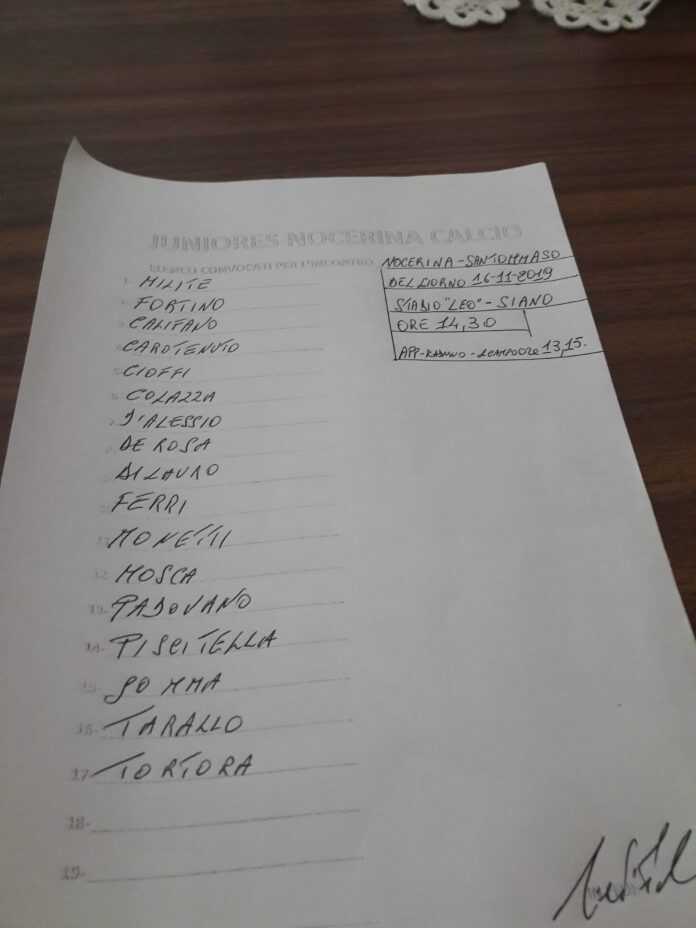 JUNIORES NOCERINA CALCIO
ELENCO CONVOCATI PER L'INCONTRO
NOCERINA - SANTOMMASO
DEL GIORNO 16-11-2019
STADIO "LEO" - SIANO
ORE 14,30
13,15.
1- MILITE
2- FORTINO
3- CALIFANO
4- CAROTENUTO
5- CIOFFI
6- COLAZZA
7- D'ALESSIO
8- DE ROSA
9- DI LAURO
10- FERRI
11- MONETTI
12- MOSCA
13- PADOVANO
14- PISCITELLA
15- SOMMA
16- TARALLO
17- TORTORA
18-
19-